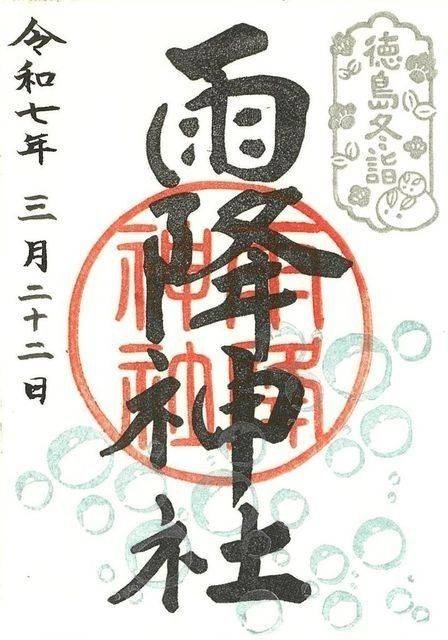 徳島冬詣
雨降神社
雨降
神社
令和七年 三月二十二日